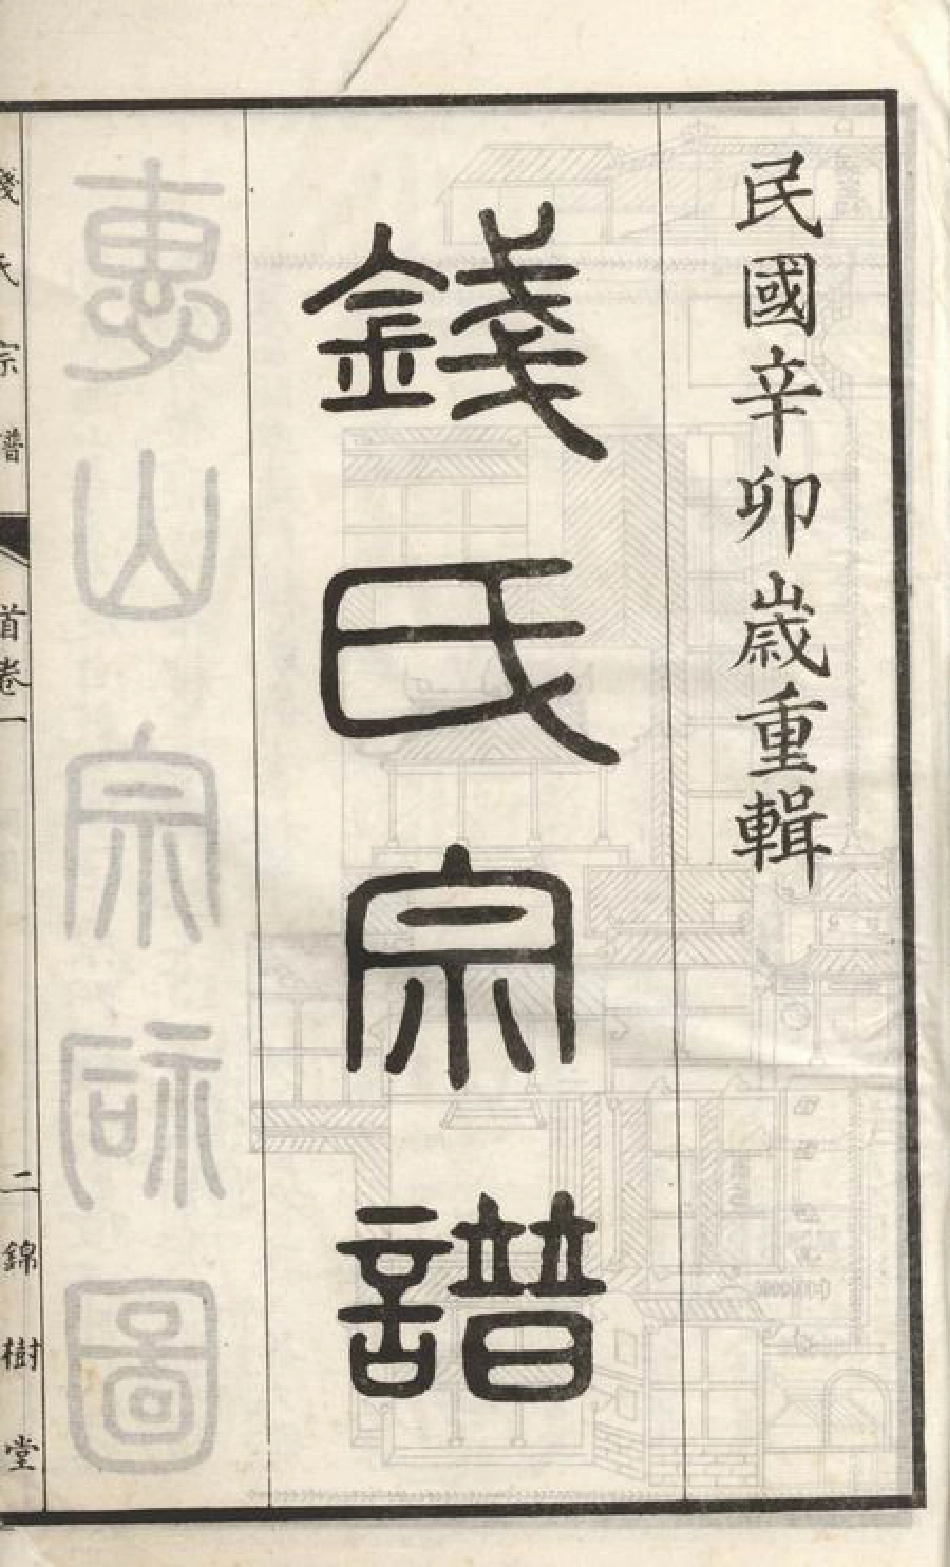 民國辛卯歲重輯
錢氏宗譜
惠山宗祠圖
錢氏宗譜 首卷一 二 錦樹堂